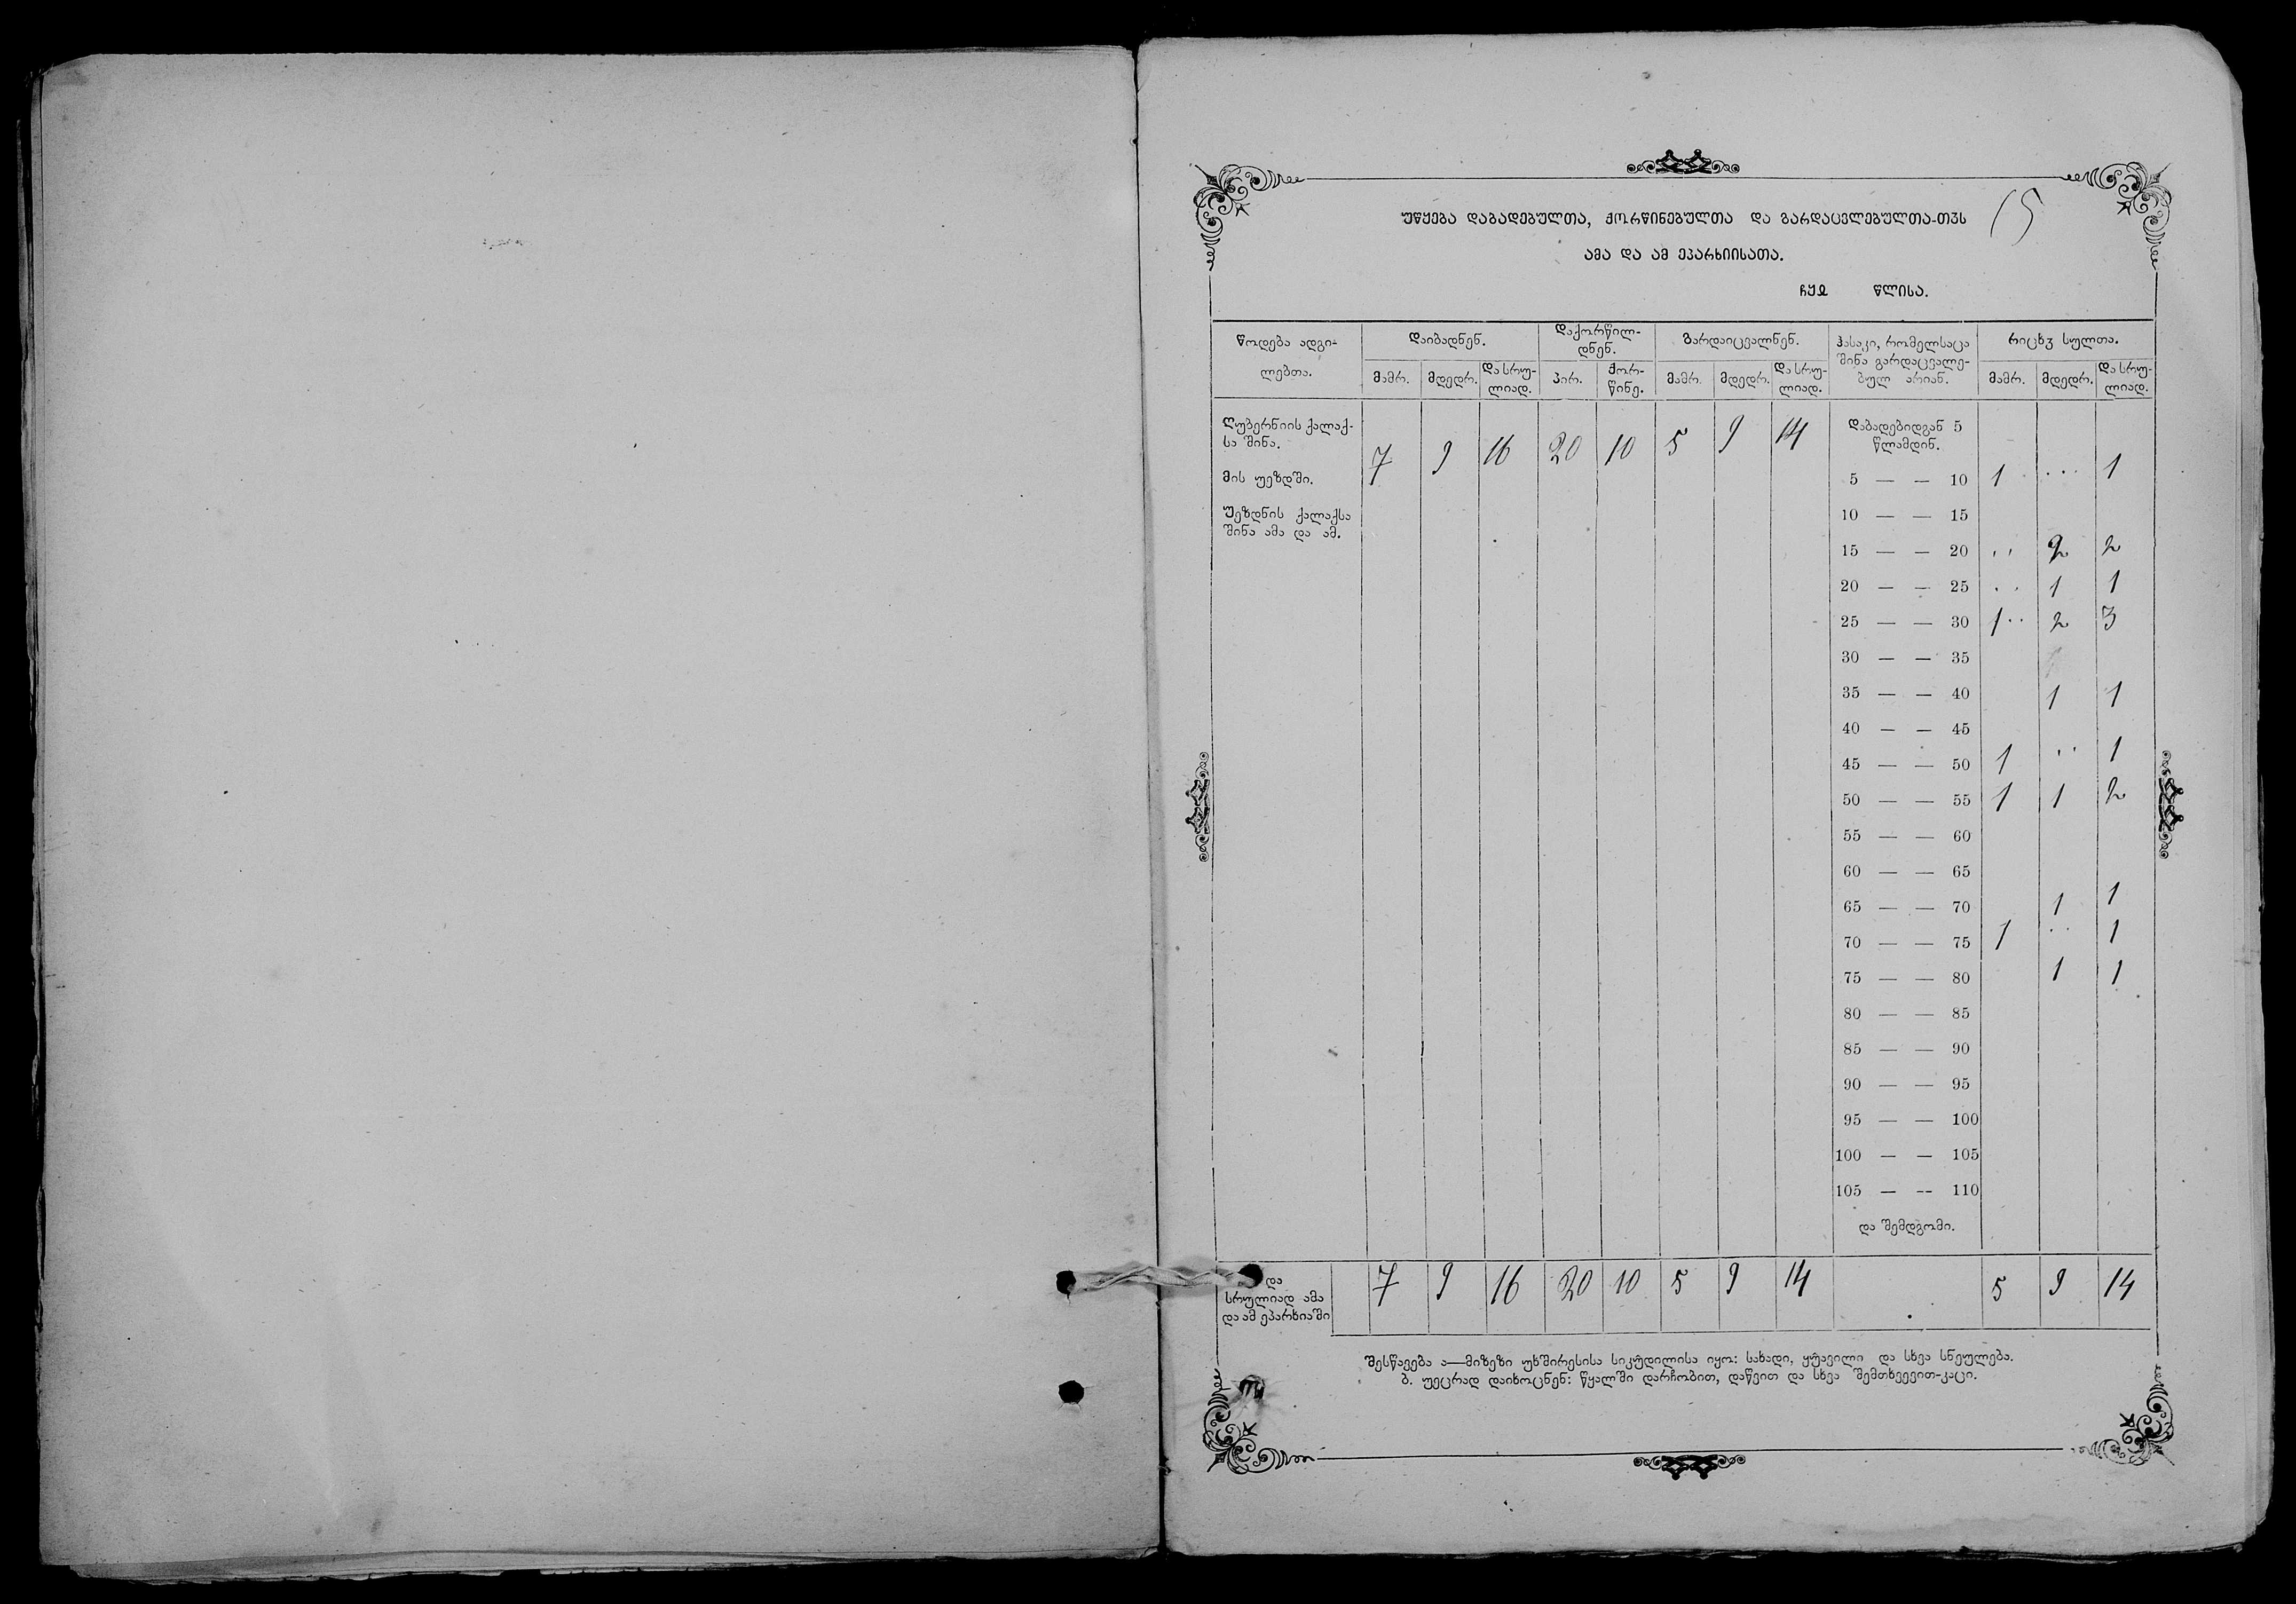 უწყება დაბადებულთა, ქორწინებულთა და გარდაცვლებულთა-თჳს
15
ამა და ამ ეპარხიისათა.
ჩყჲ წლისა.
წოდება ადგილებთა.
დაიბადნენ.
დაქორწილდნენ.
გარდაიცვალნენ.
ჰასაკი, რომელსაცა შინა გარდაცვალებულ არიან.
რიცხჳ სულთა.
მამრ. მდედრ. და სრულიად. პირ. ქორწინე. მამრ. მდედრ. და სრულიად. მამრ. მდედრ. და სრულიად.
ღუბერნიის ქალაქ-
სა შინა. 7 9 16 20 10 5 9 14
დაბადებიდგან 5
წლამდინ.
მის უეზდში.
5 — — 10 1 ... 1
უეზდნის ქალაქსა
შინა ამა და ამ.
10 — — 15
15 — — 20 .. 2 2
20 — — 25 .. 1 1
25 — — 30 1.. 2 3
30 — — 35
35 — — 40 1 1
40 — — 45
45 — — 50 1 .. 1
50 — — 55 1 1 2
55 — — 60
60 — — 65
65 — — 70 1 1
70 — — 75 1 .. 1
75 — — 80 1 1
80 — — 85
85 — — 90
90 — — 95
95 — — 100
100 — — 105
105 — -- 110
და შემდგომი.
და
სრულიად ამა
და ამ ეპარხიაში 7 9 16 20 10 5 9 14 5 9 14
შესწავება ა—მიზეზი უხშირესისა სიკუდილისა იყო: სახადი, ყუავილი და სხვა სნეულება.
ბ. უეცრად დაიხოცნენ: წყალში დარჩობით, დაწვით და სხვა შემთხვევით-კაცი.